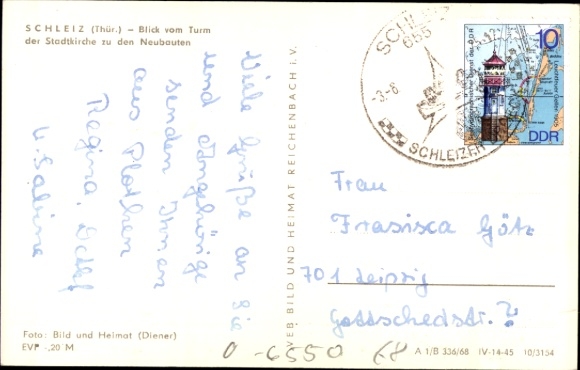 SCHLEIZ (Thür.) – Blick vom Turm
der Stadtkirche zu den Neubauten
Viele Grüße an Sie
und Angehörige
senden Ihnen
aus Plothen
Regina, Detlef
u. Sabine
Foto: Bild und Heimat (Diener)
EVP -,20 M
VEB BILD UND HEIMAT REICHENBACH i. V.
SCHLEIZ
655
-3.-8
SCHLEIZER
10
DDR
Frau
Frasisca Götz
701 Leipzig
Gottschedstr. 7
0-6550 68
A 1/B 336/68 IV-14-45 10/3154